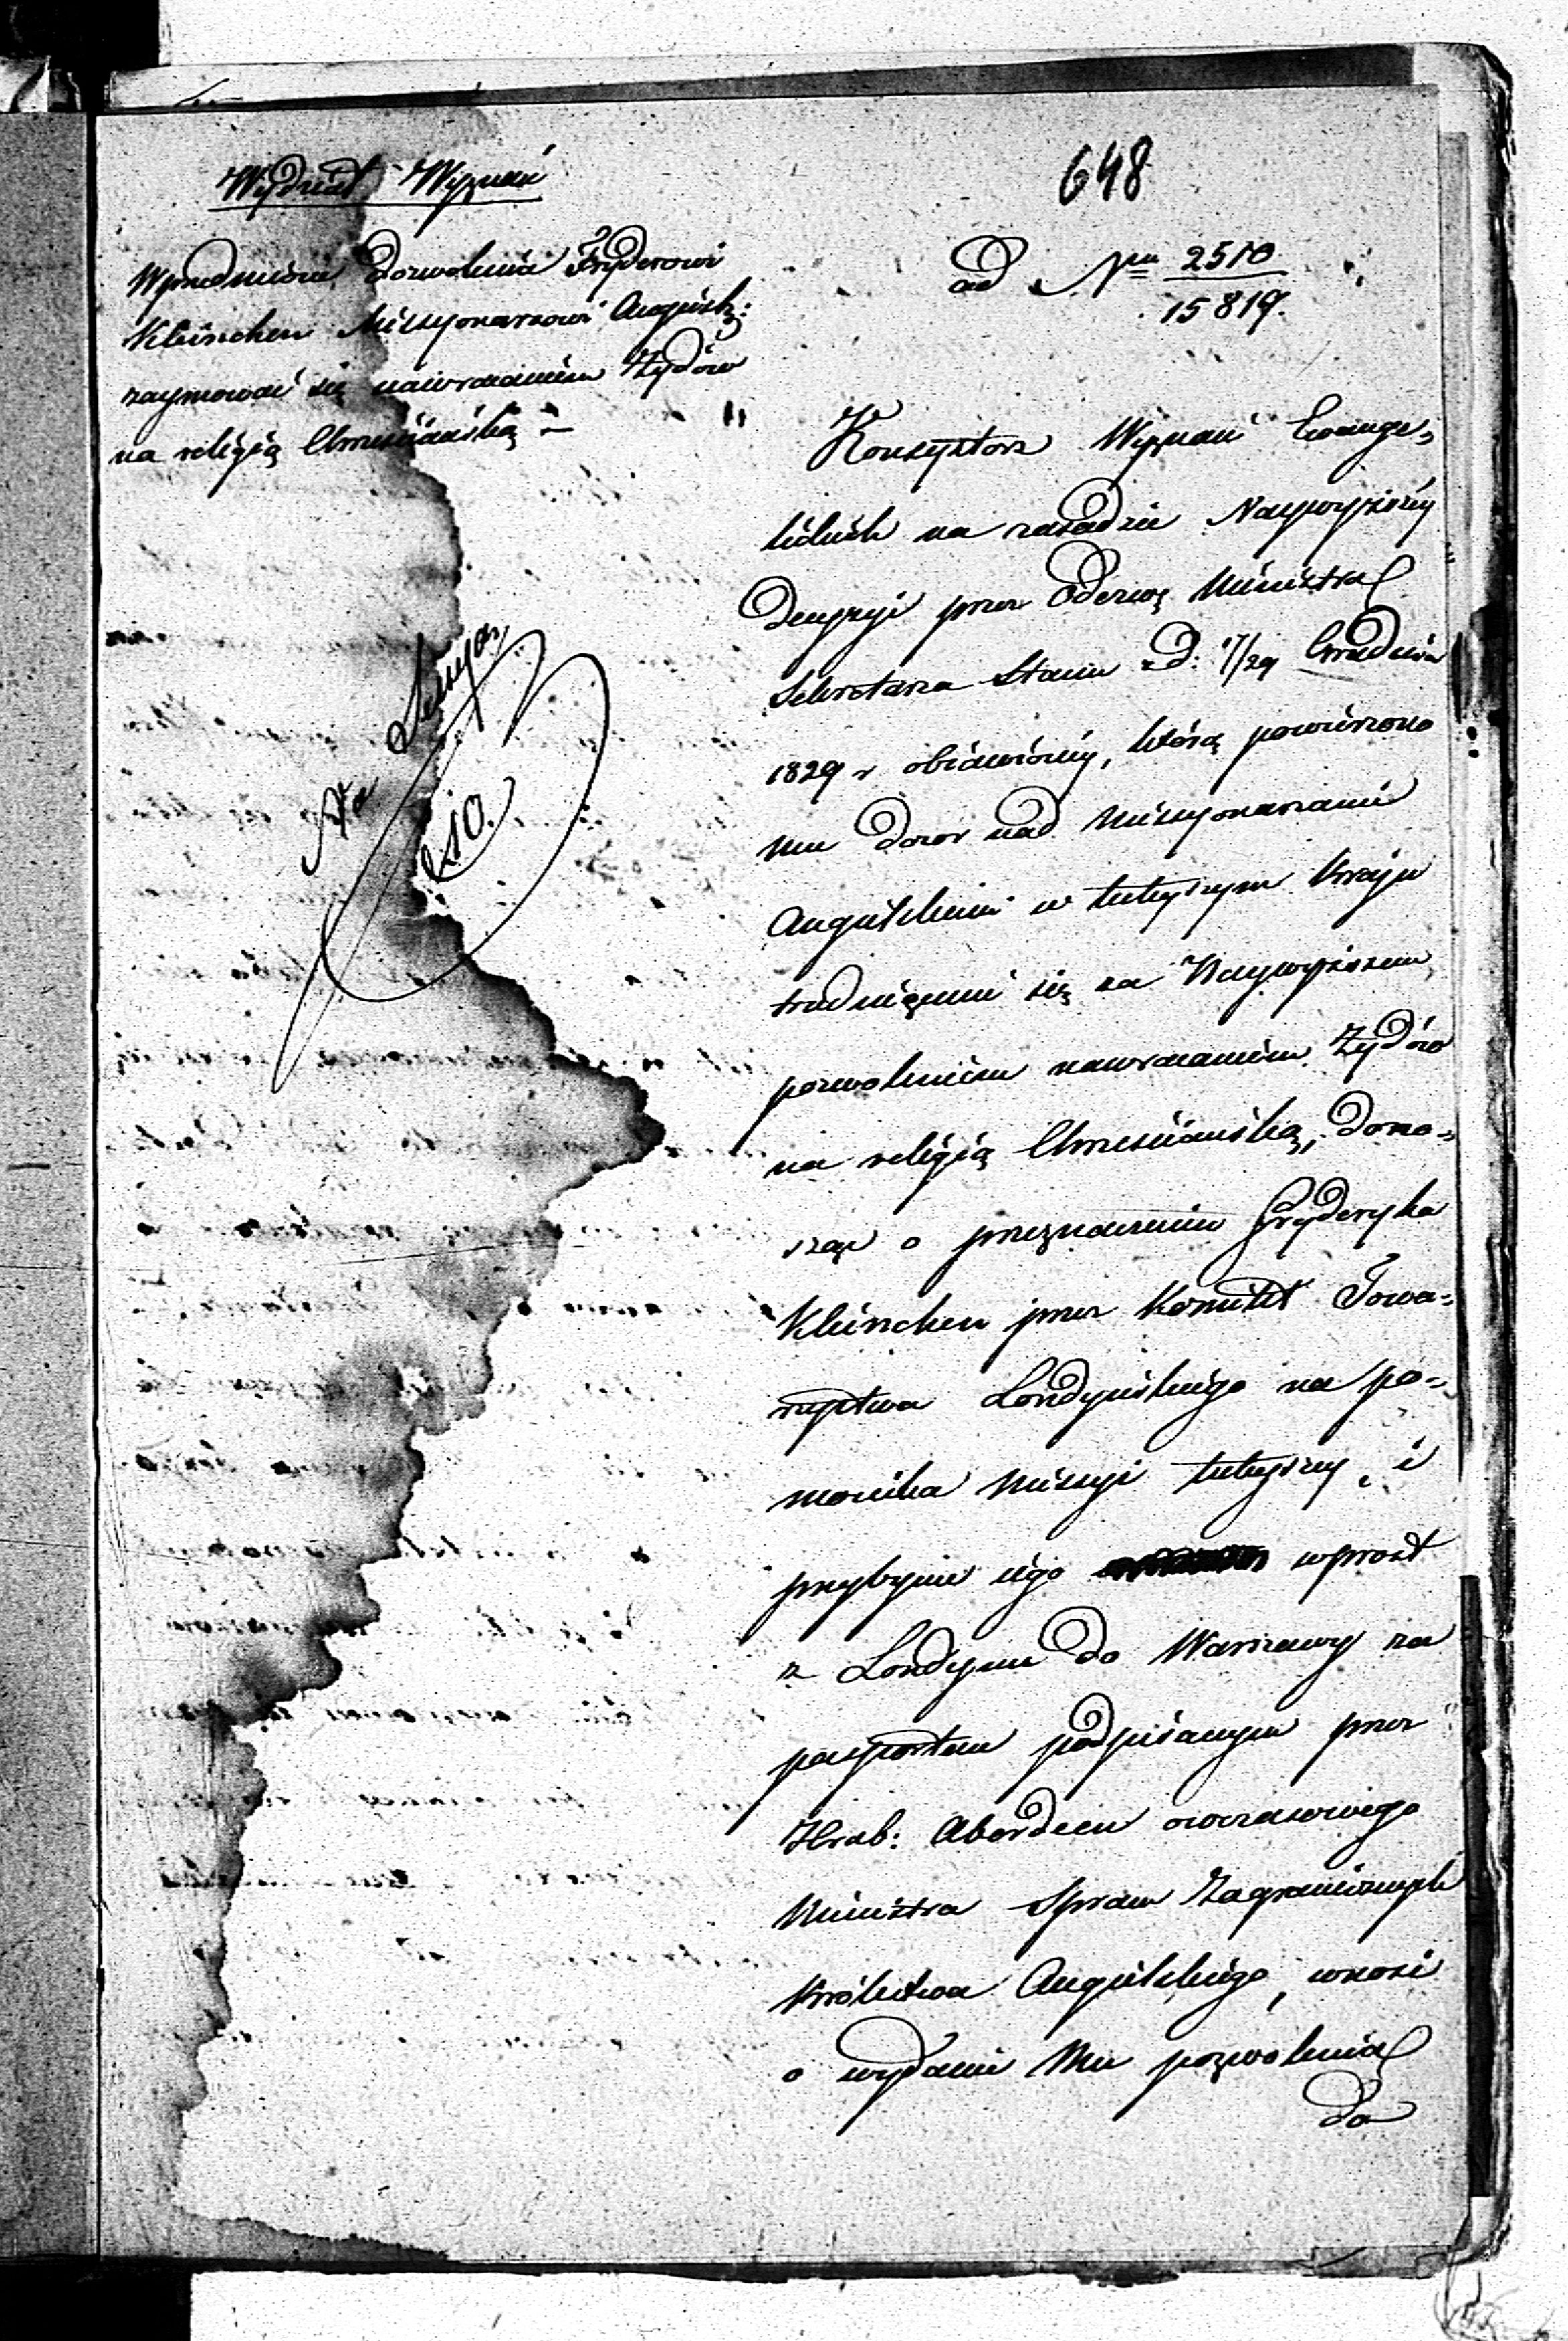 Wydział Wyznań
648
W przedmiocie dozwolenia Fryderowi
Kleinschen Missyonarzowi Angielsk:
zaymować się nawracaniem Żydów
na religią Chrześciańską –
ad Nrum 2510
15819.
Na Sessyą
10.
Konsystorz Wyznań Ewange-
lickich na zasadzie Naywyższéy
Decyzyi przez Odezwę Ministra
Sekretarza Stanu D: 17/29 Grudnia
1829 r obiawionéy, którą powierzono
mu dozor nad Missyonarzami
Angielskiemi w tuteyszym Kraju
trudniącemi się za Naywyższem
pozwoleniem nawracaniem Żydów
na religią Chrześciańską, dono-
sząc o przeznaczeniu Fryderyka
Kleinschen przez Komitet Towa-
rzystwa Londyńskiego na po-
mocnika Missyi tuteyszey, i
przybyciu iego wprost
z Londynu do Warszawy za
paszportem podpisanym przez
Hrab: Aberdeen owczasowego
Ministra Spraw Zagranicznych
Królestwa Angielskiego, wnosi
o wydanie Mu pozwolenia
do